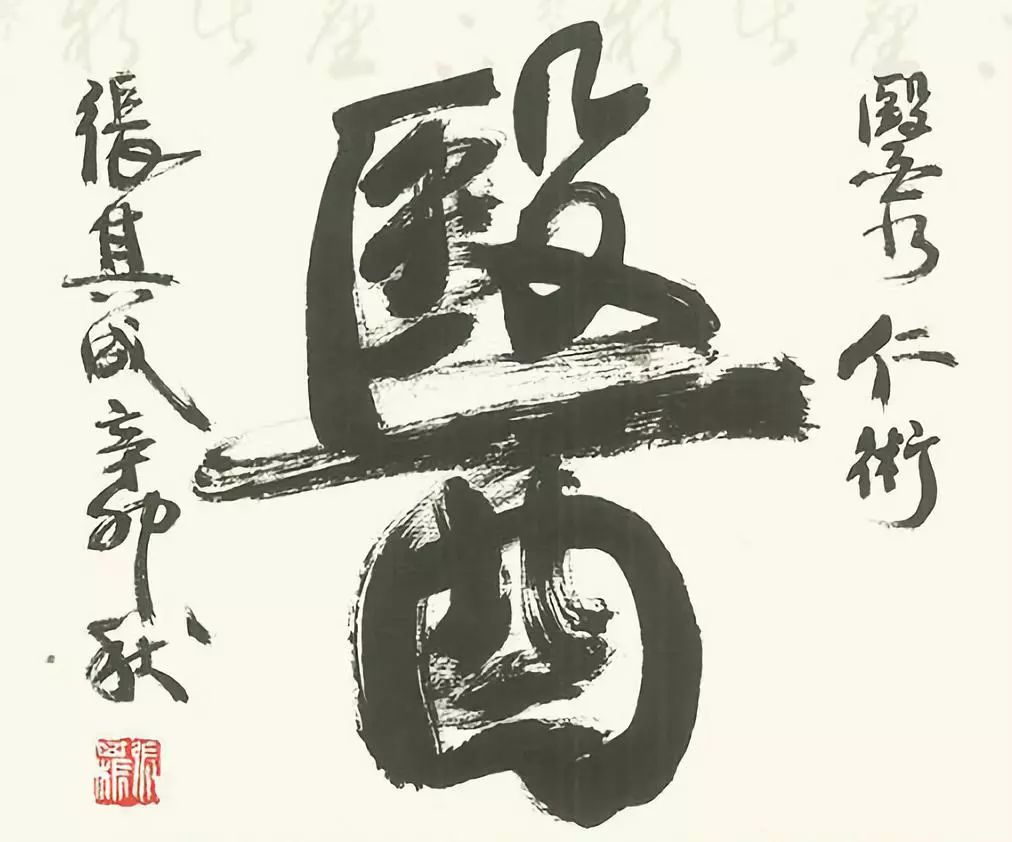 醫乃仁術
醫
張其成辛卯秋